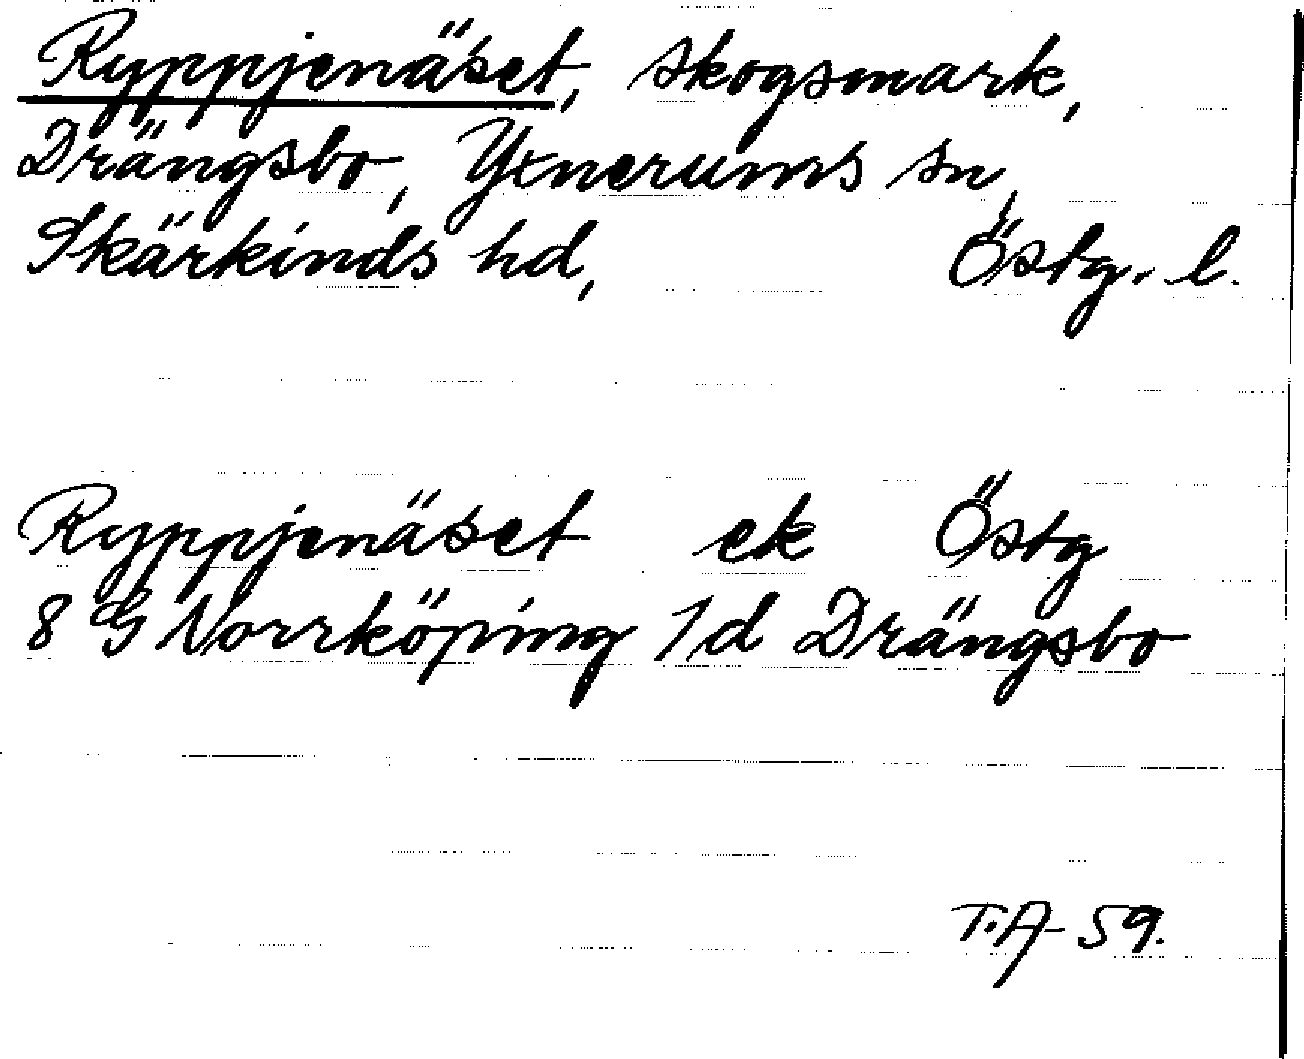 Ryppjenäset, skogsmark,
Drängsbo, Yxnerums sn,
Skärkinds hd, Östg. l.
Ryppjenäset ek Östg
8 G Norrköping 1d Drängsbo
T.A 59.